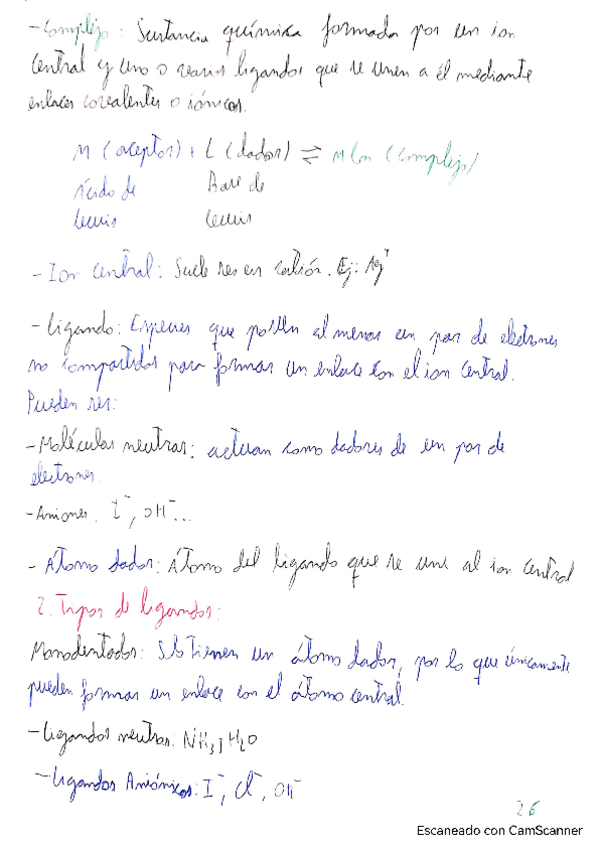 - Complejo: Sustancia química formada por un ion
Central y uno o varios ligandos que se unen a él mediante
enlaces covalentes o iónicos.
M (aceptor) + L (dador) ⇌ MLn (Complejo)
Ácido de Base de
Lewis Lewis
- Ion Central: Suele ser un catión. Ej: Ag⁺
- Ligando: Especies que poseen al menos un par de electrones
no compartidos para formar un enlace con el ion Central.
Pueden ser:
- Moléculas neutras: actúan como dadores de un par de
electrones.
- Aniones: I⁻, OH⁻...
- Átomo dador: Átomo del ligando que se une al ion central
2. Tipos de ligandos:
Monodentados: Sólo tienen un átomo dador, por lo que únicamente
pueden formar un enlace con el átomo central.
- Ligandos neutros: NH₃, H₂O
- Ligandos Aniónicos: I⁻, Cl⁻, OH⁻
26
Escaneado con CamScanner